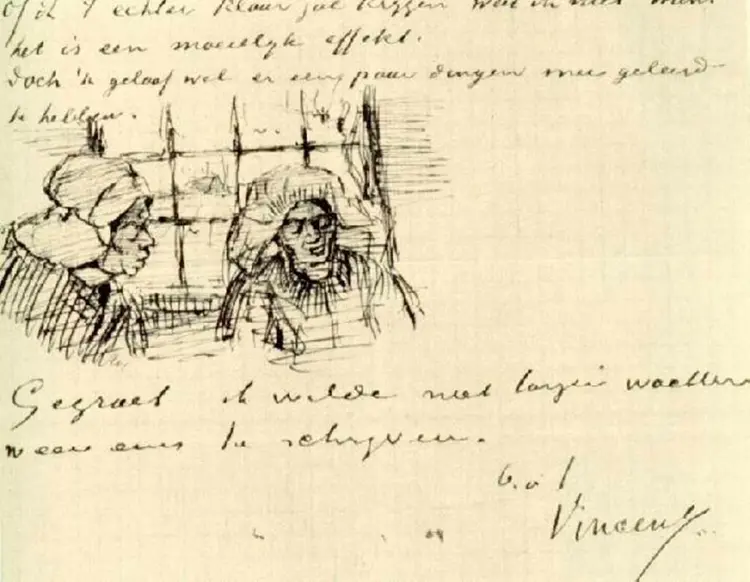 Of ik 't echter klaar zal krijgen weet ik niet want
het is een moeielijk effekt.
Doch 'k geloof wel er een paar dingen mee geleerd
te hebben.
Gegroet ik wilde niet langer wachten
weer eens te schrijven.
b. à t
Vincent